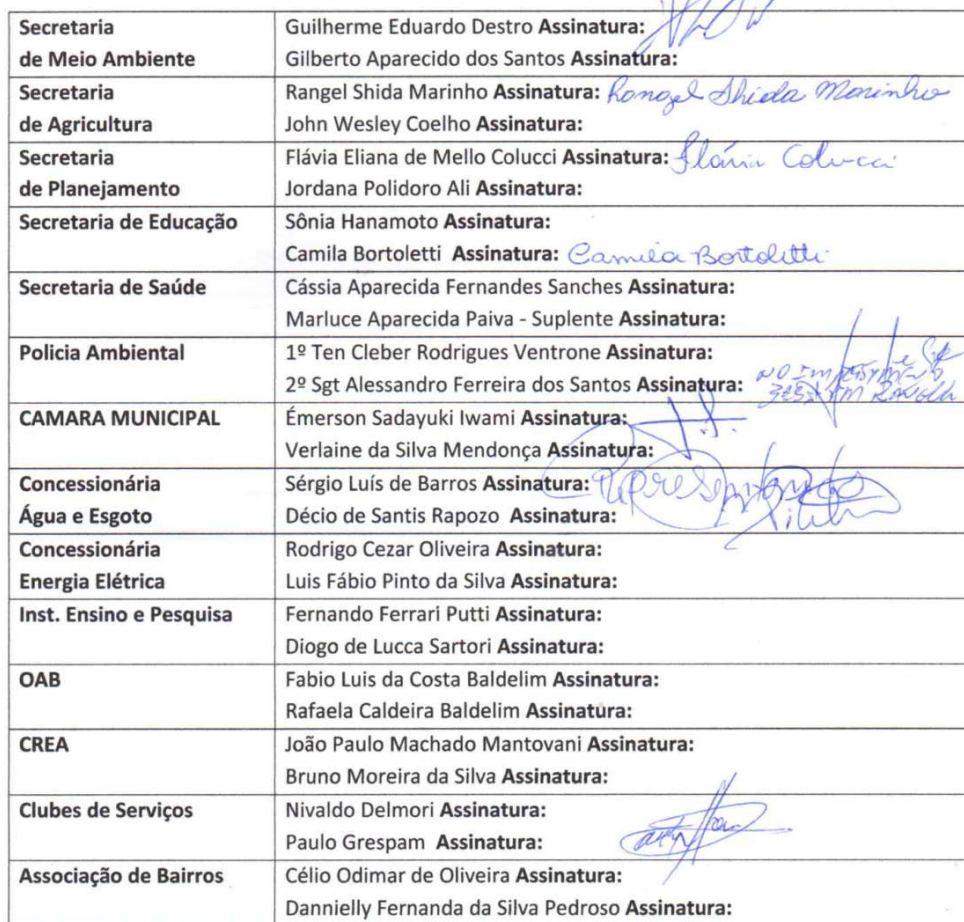 Secretaria
de Meio Ambiente
Guilherme Eduardo Destro Assinatura:
Gilberto Aparecido dos Santos Assinatura:
Secretaria
de Agricultura
Rangel Shida Marinho Assinatura: Rangel Shida Marinho
John Wesley Coelho Assinatura:
Secretaria
de Planejamento
Flávia Eliana de Mello Colucci Assinatura: Flávia Colucci
Jordana Polidoro Ali Assinatura:
Secretaria de Educação
Sônia Hanamoto Assinatura:
Camila Bortoletti Assinatura: Camila Bortoletti
Secretaria de Saúde
Cássia Aparecida Fernandes Sanches Assinatura:
Marluce Aparecida Paiva - Suplente Assinatura:
Policia Ambiental
1º Ten Cleber Rodrigues Ventrone Assinatura:
2º Sgt Alessandro Ferreira dos Santos Assinatura:
CAMARA MUNICIPAL
Émerson Sadayuki Iwami Assinatura:
Verlaine da Silva Mendonça Assinatura:
Concessionária
Água e Esgoto
Sérgio Luís de Barros Assinatura:
Décio de Santis Rapozo Assinatura:
Concessionária
Energia Elétrica
Rodrigo Cezar Oliveira Assinatura:
Luis Fábio Pinto da Silva Assinatura:
Inst. Ensino e Pesquisa
Fernando Ferrari Putti Assinatura:
Diogo de Lucca Sartori Assinatura:
OAB
Fabio Luis da Costa Baldelim Assinatura:
Rafaela Caldeira Baldelim Assinatura:
CREA
João Paulo Machado Mantovani Assinatura:
Bruno Moreira da Silva Assinatura:
Clubes de Serviços
Nivaldo Delmori Assinatura:
Paulo Grespam Assinatura:
Associação de Bairros
Célio Odimar de Oliveira Assinatura:
Dannielly Fernanda da Silva Pedroso Assinatura: